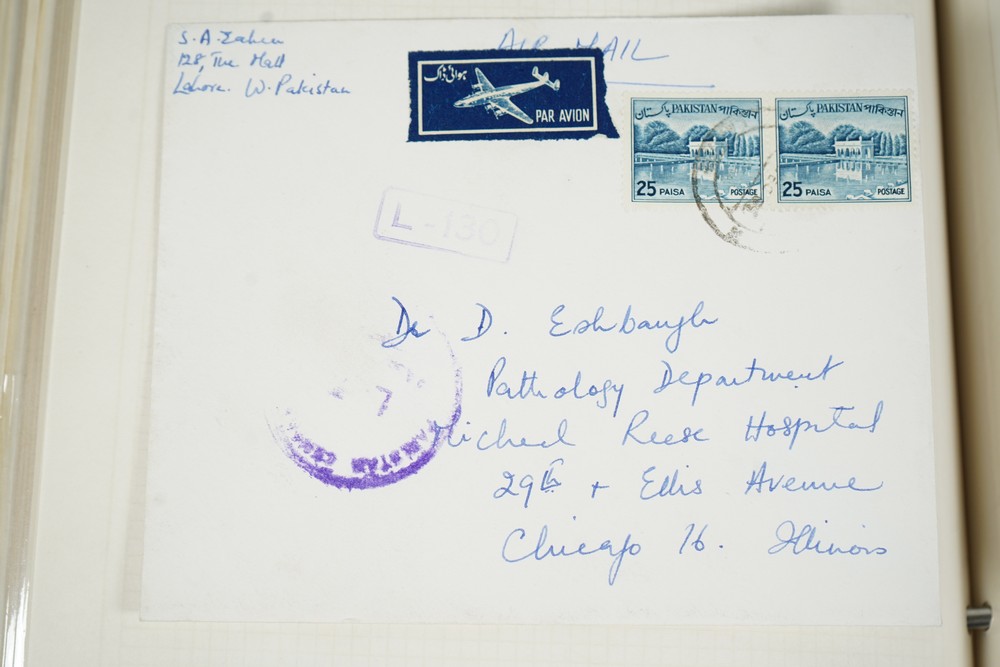 S. A. 
128, The Mall
Lahore. W. Pakistan
AIR MAIL
ہوائی ڈاک
PAR AVION
پاکستان PAKISTAN পাকিস্তান
25 PAISA POSTAGE
پاکستان PAKISTAN পাকিস্তান
25 PAISA POSTAGE
L-130
Dr D. Eshbaugh
Pathology Department
Micheal Reese Hospital
29th + Ellis Avenue
Chicago 16. Illinois
7
PAKISTAN